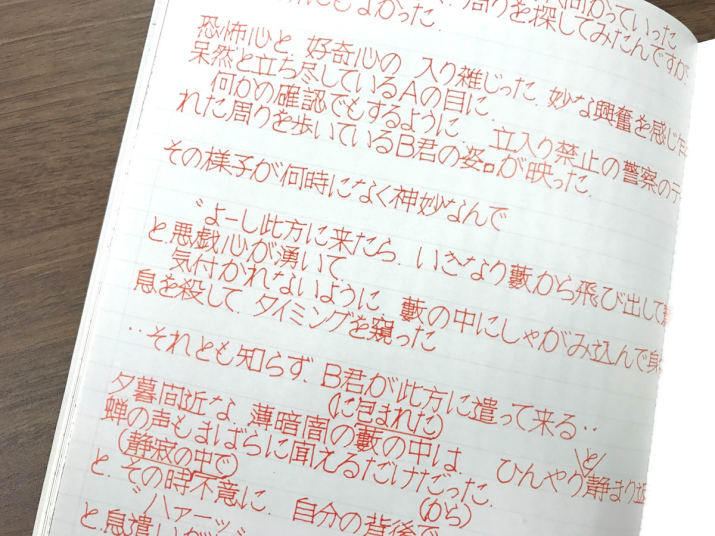 にもなかった. 周りを探してみたんですが
向かっていった
恐怖心と、好奇心の 入り雑じった、妙な興奮を感じ
呆然と立ち尽しているAの目に、
何かの確認でもするように、 立入り禁止の警察の
れた周りを歩いているB君の姿。が映った.
その様子が何時になく神妙なんで
〝よーし此方に来たら、いきなり藪から飛び出して
と、悪戯心が湧いて
気付かれないように、藪の中にしゃがみ込んで身
息を殺して、タイミングを窺った
‥それとも知らず、B君が此方に遣って来る‥
(に包まれた)
夕暮間近な、薄暗闇の藪の中は、 ひんやり静まり
と
蝉の声もまばらに聞えるだけだった.
(静寂の中で)
(から)
と、その時不意に、 自分の背後で
〝ハァーッ
と、息遣いが